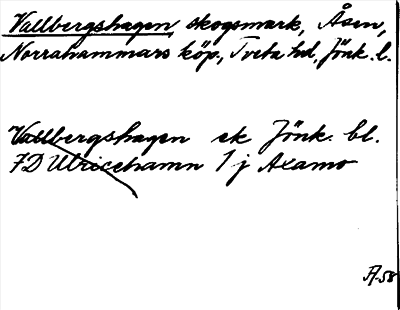 Vallbergshagen, skogsmark, Åsen,
Norrahammars köp., Tveta hd, Jönk. l.
Vallbergshagen ek Jönk. bl.
7D Ulricehamn 1 j Axamo
A. 58